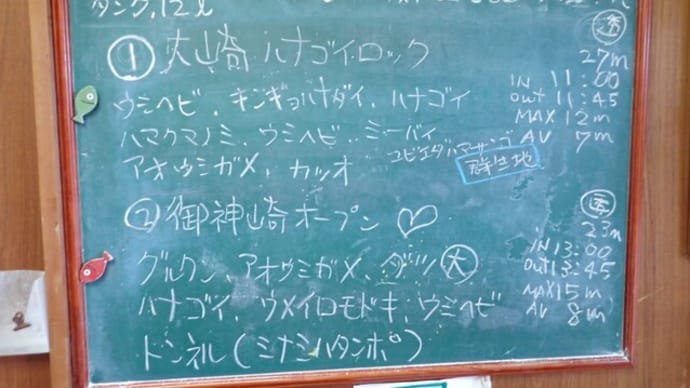 タンク.12ℓ
① 大崎 ハナゴイロック
透
27m
ウミヘビ、キンギョハナダイ、ハナゴイ
IN 11:00
out 11:45
ハマクマノミ、ウミヘビ、ミーバイ
MAX 12m
AV 7m
アオウミガメ、カツオ
ユビエダハマサンゴ
群生地
② 御神崎オープン ♡
透
23m
グルクン、アオウミガメ、ダツ 大
IN 13:00
Out 13:45
ハナゴイ、ウメイロモドキ、ウミヘビ
MAX 15m
AV 8m
トンネル(ミナミハタンポ)